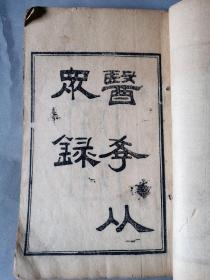 醫斈从
眾録